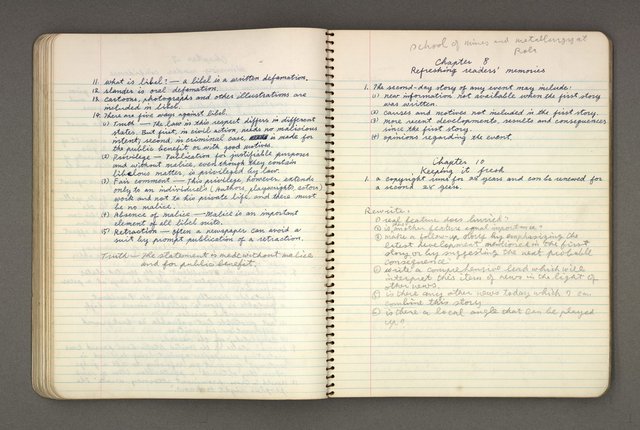 11. what is libel? — a libel is a written defamation.
12. slander is oral defamation.
13. Cartoons, photographs and other illustrations are
included in libel.
14. There are five ways against libel.
(1) Truth — The law in this respect differs in different
states. But first, in civil action, needs no malicious
intent, second, in criminal case, is made for
the public benefit or with good motives.
(2) Privilege — Publication for justifiable purposes
and without malice, even though they contain
libelous matter, is privileged by law.
(3) Fair comment — This privilege, however, extends
only to an individual's (authors, playwrights, actors)
work and not to his private life, and there must
be no malice.
(4) Absence of malice — Malice is an important
element of all libel suits.
(5) Retraction — often a newspaper can avoid a
suit by prompt publication of a retraction.
Truth — the statement is made without malice
and for public benefit.
School of mines and metallurgy at
Rola
Chapter 8
Refreshing readers' memories
1. The second-day story of any event may include:
(1) new information not available when the first story
was written.
(2) causes and motives not included in the first story.
(3) more recent developments, results and consequences
since the first story.
(4) opinions regarding the event.
Chapter 10
Keeping it fresh
1. a copyright runs for 28 years and can be renewed for
a second 28 years.
Rewrite:
① real feature does buried?
② is another feature equal importance?
③ make a follow-up story by emphasizing the
latest development mentioned in the first
story or by suggesting the next probable
consequence.
④ write a comprehensive lead which will
interpret this item of news in the light of
other news.
⑤ is there any other news today which I can
combine this story
⑥ is there a local angle that can be played
up?